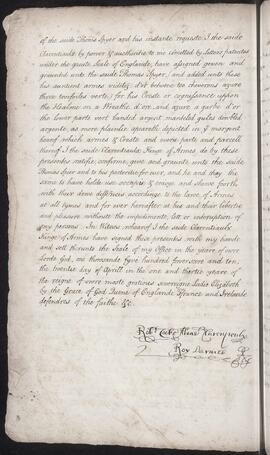 of the saide Thomas Spyer and his instante requeste I the saide
Clarentiault by power & aucthoritie to me comitted by letters patentes
under the greate Seale of Englande, have assigned geven and
graunted unto the saide Thomas Spyer, and added unto these
his auntient armes
these for his Creste or cognisaunce uppon
the Healme on a Wreathe d'or and azure a garbe d'or
the lower parte vert banded argent manteled gules doubled
argente, as more plainlie appeareth depicted in y margent
heareof which armes & Creste and every parte and parcell
thereof I the saide Clarentiault Kinge of Armes do by these
presentes ratifie, confirme, geve and graunte unto the saide
Thomas Spyer and to his posteritie for ever, and he and they the
same to have holde use occupie & enioye and sheowe forth
with their dewe differences accordinge to the lawe of Armes
at all tymes and for ever hereafter at his and their libertie
and pleasure without the impediment, lett or interuption of
any persons. In Witnes wheareof I the saide Clarentiault
Kinge of Armes have signed these presentes with my hande
and sett thereunto the Seale of my Office in the yeare of owr
Lorde God, one thousande fyve hundred fowerscore and ten,
the twentie day of Aprill in the one and thirtie yeare of
the reigne of owre moste gratious sovereigne Ladie Elizabeth
by the Grace of God Queene of Englande Fraunce and Irelande
defendors of the faithe &c.
Robt Cooke Clarencieulx
Roy Darmes